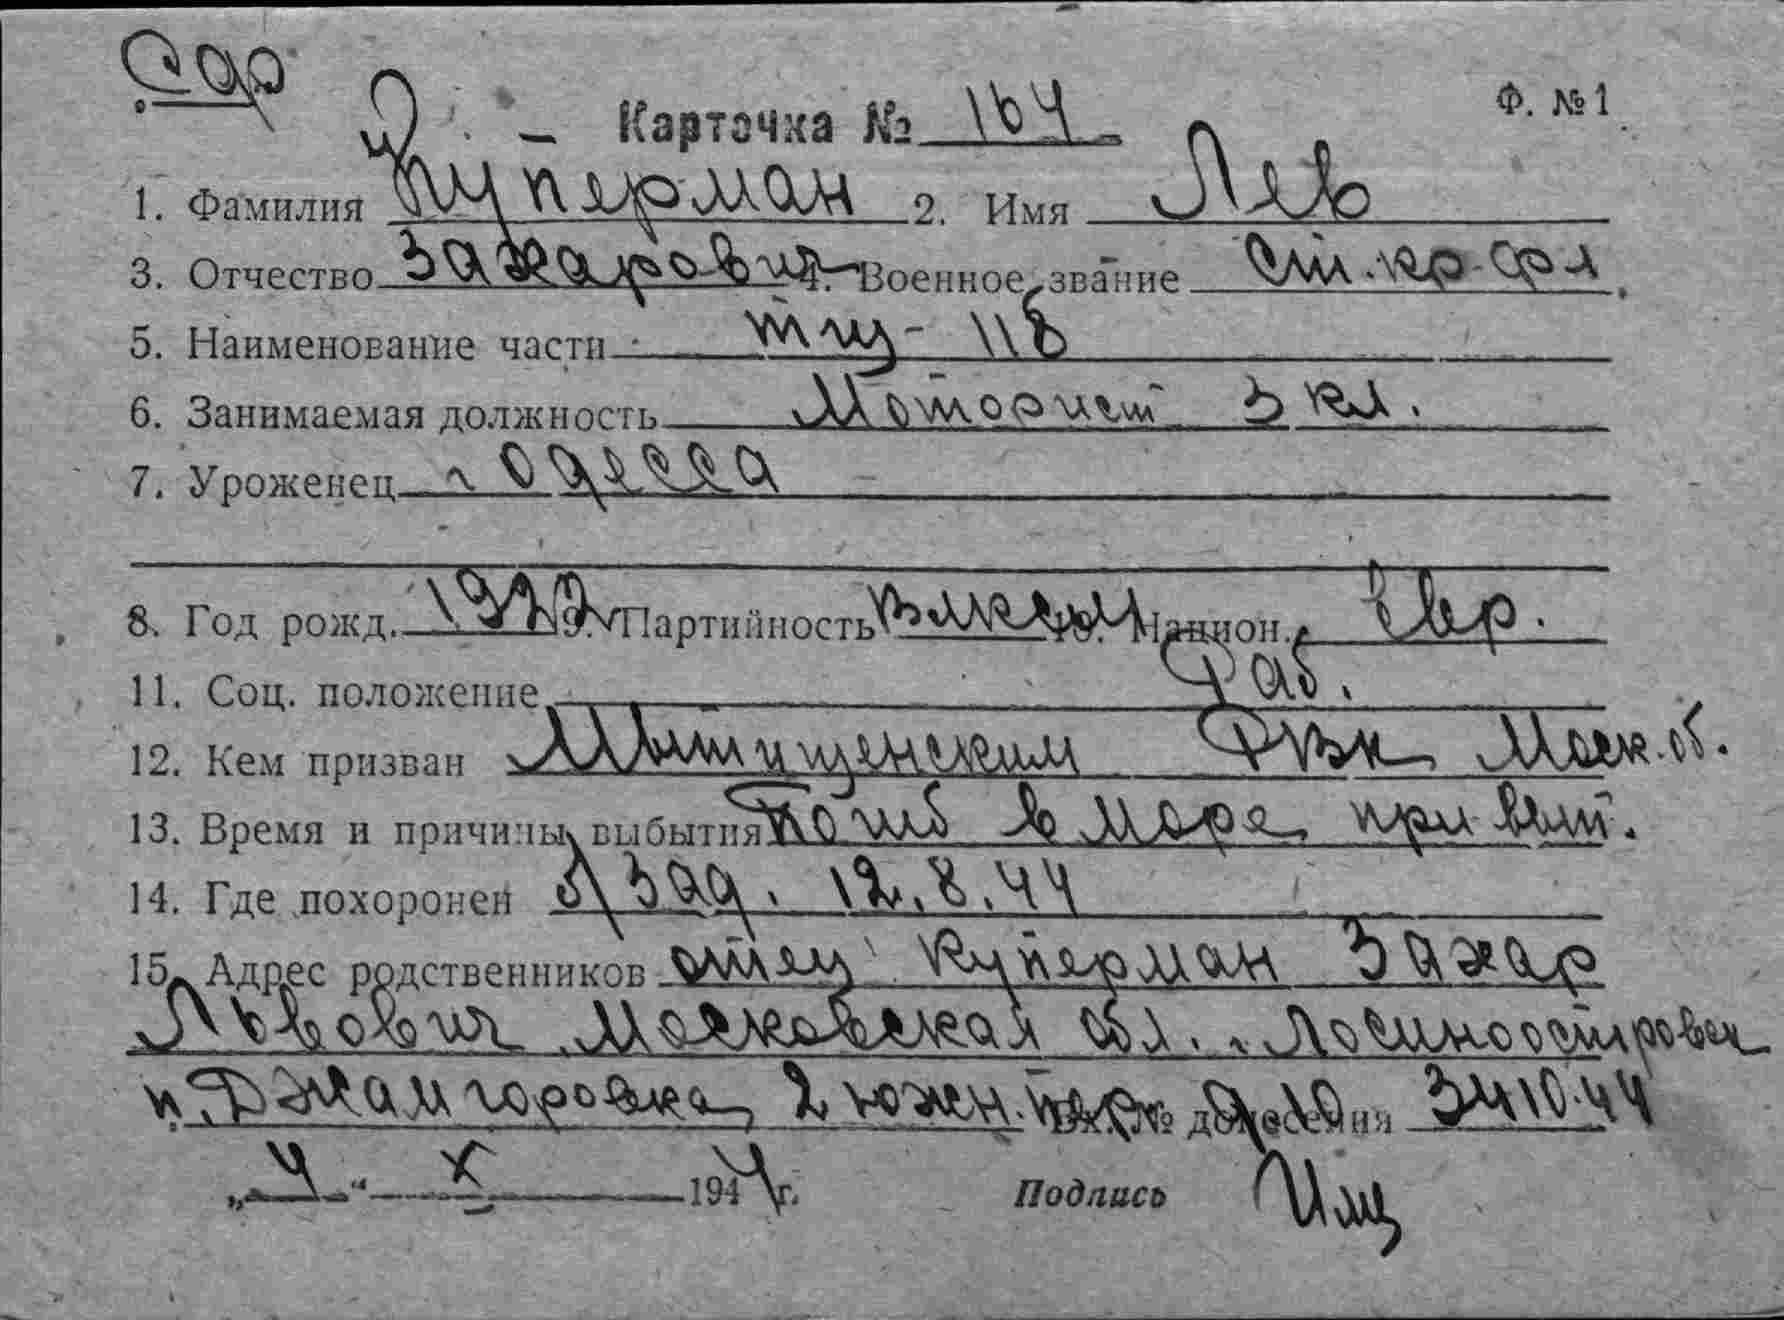 Ф. №1
Карточка № 164
1. Фамилия Куперман 2. Имя Лев
3. Отчество Захарович 4. Военное звание Ст. кр-фл
5. Наименование части тщ-118
6. Занимаемая должность Моторист 3 кл.
7. Уроженец г Одесса
8. Год рожд. 1922 9. Партийность ВЛКСМ 10. Национ. Евр.
11. Соц. положение Раб.
12. Кем призван Мытищенским РВК Моск. об.
13. Время и причины выбытия Погиб в море при вып.
14. Где похоронен б/зад. 12.8.44
15. Адрес родственников отец Куперман Захар
Львович Московская обл. г. Лосиноостровск
п. Джамгоровка, 2 южн. пер. д 10 Вх. № донесения 3410.44
„4“ X 1944г. Подпись